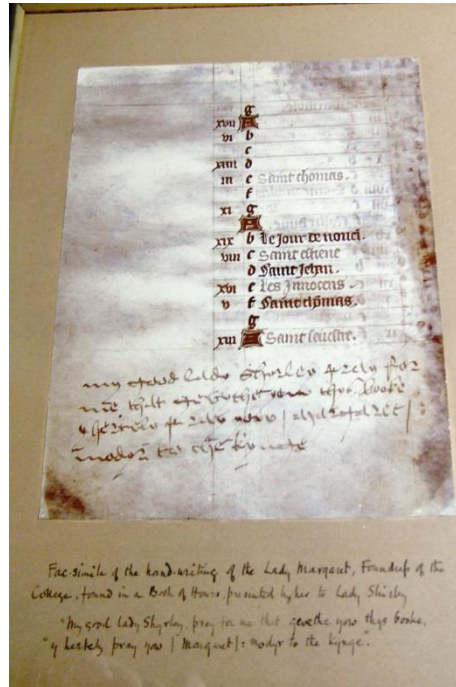 g
xvii A
vi b
c
xiiii d
iii e Saint thomas.
f
xi g
A
xix b Le Jour de nouel.
viii c Saint estiene
d Saint Jehan.
xvi e Les Innocens
v f Saint thomas.
g
xiii A Saint seuestre.
my good lady Shyrley pray for
me that gevythe yow thys booke
y hertely pray yow / margaret /
modyr to the kynge
Fac-simile of the hand-writing of the Lady Margaret, Foundress of the
College, found in a Book of Hours, presented by her to Lady Shirley
"My good Lady Shyrley, pray for me that gevethe yow thys booke,
"y hertely pray yow / Margaret /: modyr to the kynge".